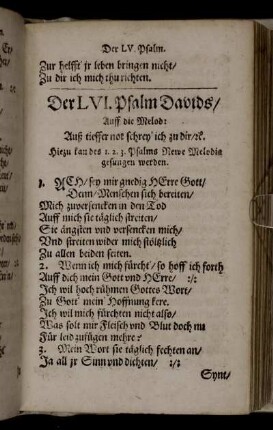 Der LV. Psalm.
Zur hellst jr leben bringen nicht/
Zu dir ich mich thu richten.
Der LVI. Psalm Davids/
Auff die Melod:
Auß tieffer not schrey ich zu dir/ꝛc.
Hiezu kan des 1. 2. 3. Psalms Newe Melodia
gesungen werden.
1. ACH/ sey mir gnedig HErre Gott/
Denn Menschen sich bereiten/
Mich zuversencken in den Tod
Auff mich sie täglich streiten/
Sie ängsten vnd versencken mich/
Vnd streiten wider mich stöltzlich
Zu allen beiden seiten.
2. Wenn ich mich fürcht/ so hoff ich forth
Auff dich mein Gott vnd HErre/ :/:
Ich wil hoch rühmen Gottes Wort/
Zu Gott mein Hoffnung kere.
Ich wil mich fürchten nicht also/
Was solt mir Fleisch vnd Blut doch nu
Für leid zufügen mehre?
3. Mein Wort sie täglich fechten an/
Ja all jr Sinn vnd dichten/ :/:
Synt/